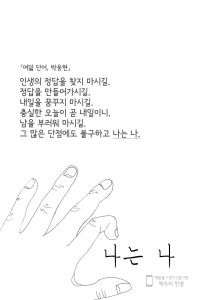 「여덟 단어, 박웅현」
인생의 정답을 찾지 마시길.
정답을 만들어가시길.
내일을 꿈꾸지 마시길.
충실한 오늘이 곧 내일이니.
남을 부러워 마시길.
그 많은 단점에도 불구하고 나는 나.
나는 나
책속의 한줄